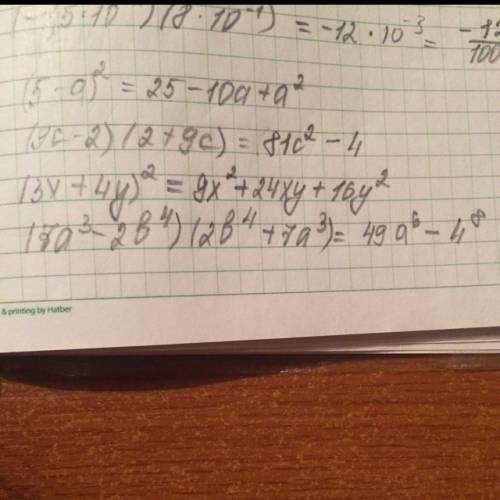 ·10 ) (8·10⁻¹) = -12·10⁻³ = -12/100
(5-a)² = 25-10a+a²
(9c-2)(2+9c) = 81c²-4
(3x+4y)² = 9x²+24xy+16y²
(7a³-2b⁴)(2b⁴+7a³) = 49a⁶-4⁸
& printing by Hatber